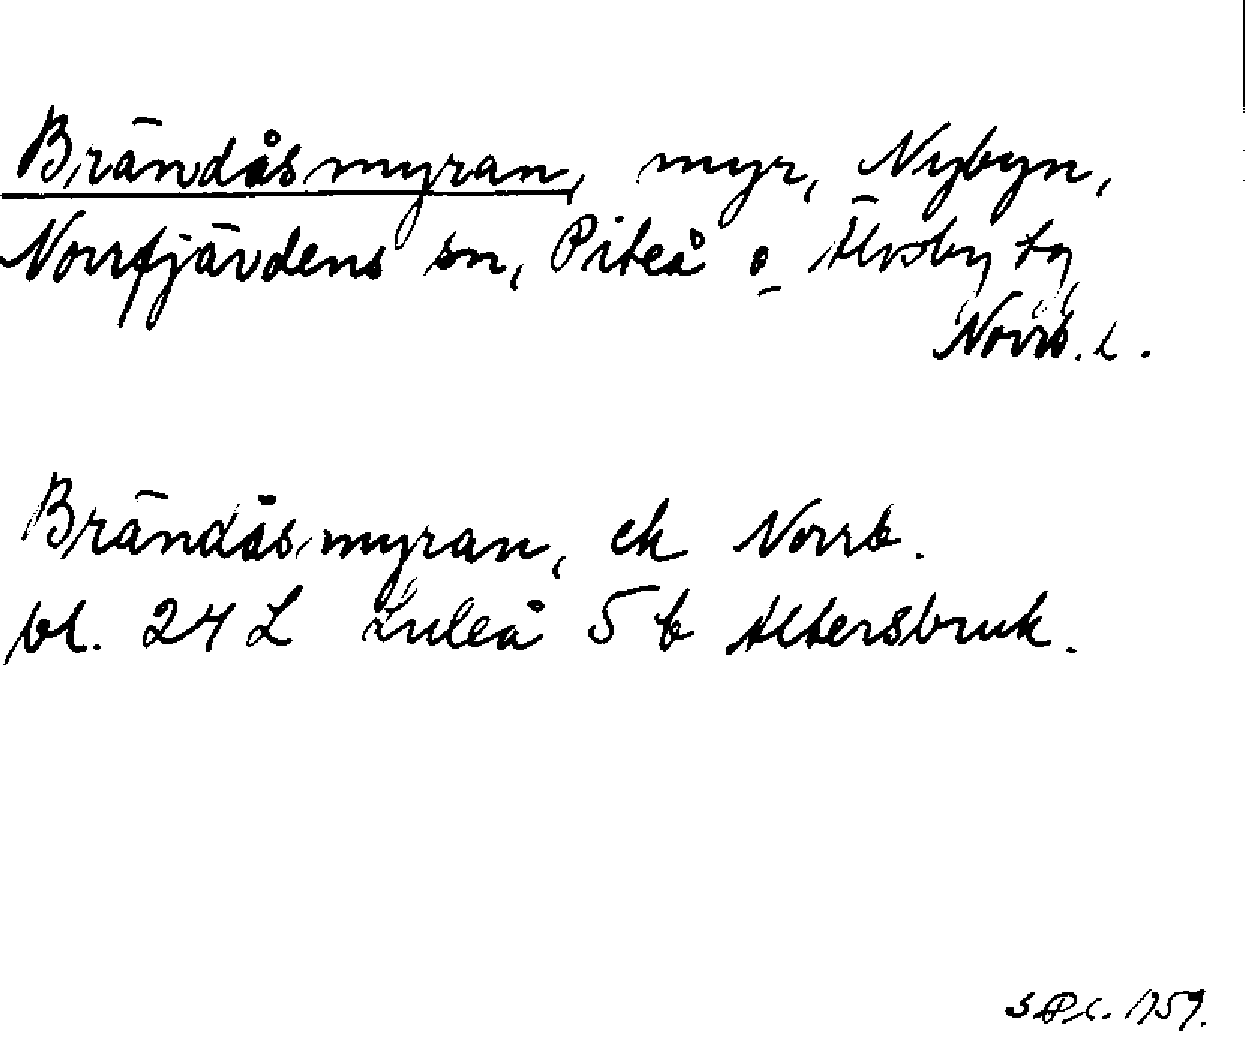 Brändåsmyran, myr, Nybyn,
Norrfjärdens sn, Piteå o Älvsby tg
Norrb. l.
Brändåsmyran, ek Norrb.
bl. 24 L Luleå 5 b Altersbruk.
1959.